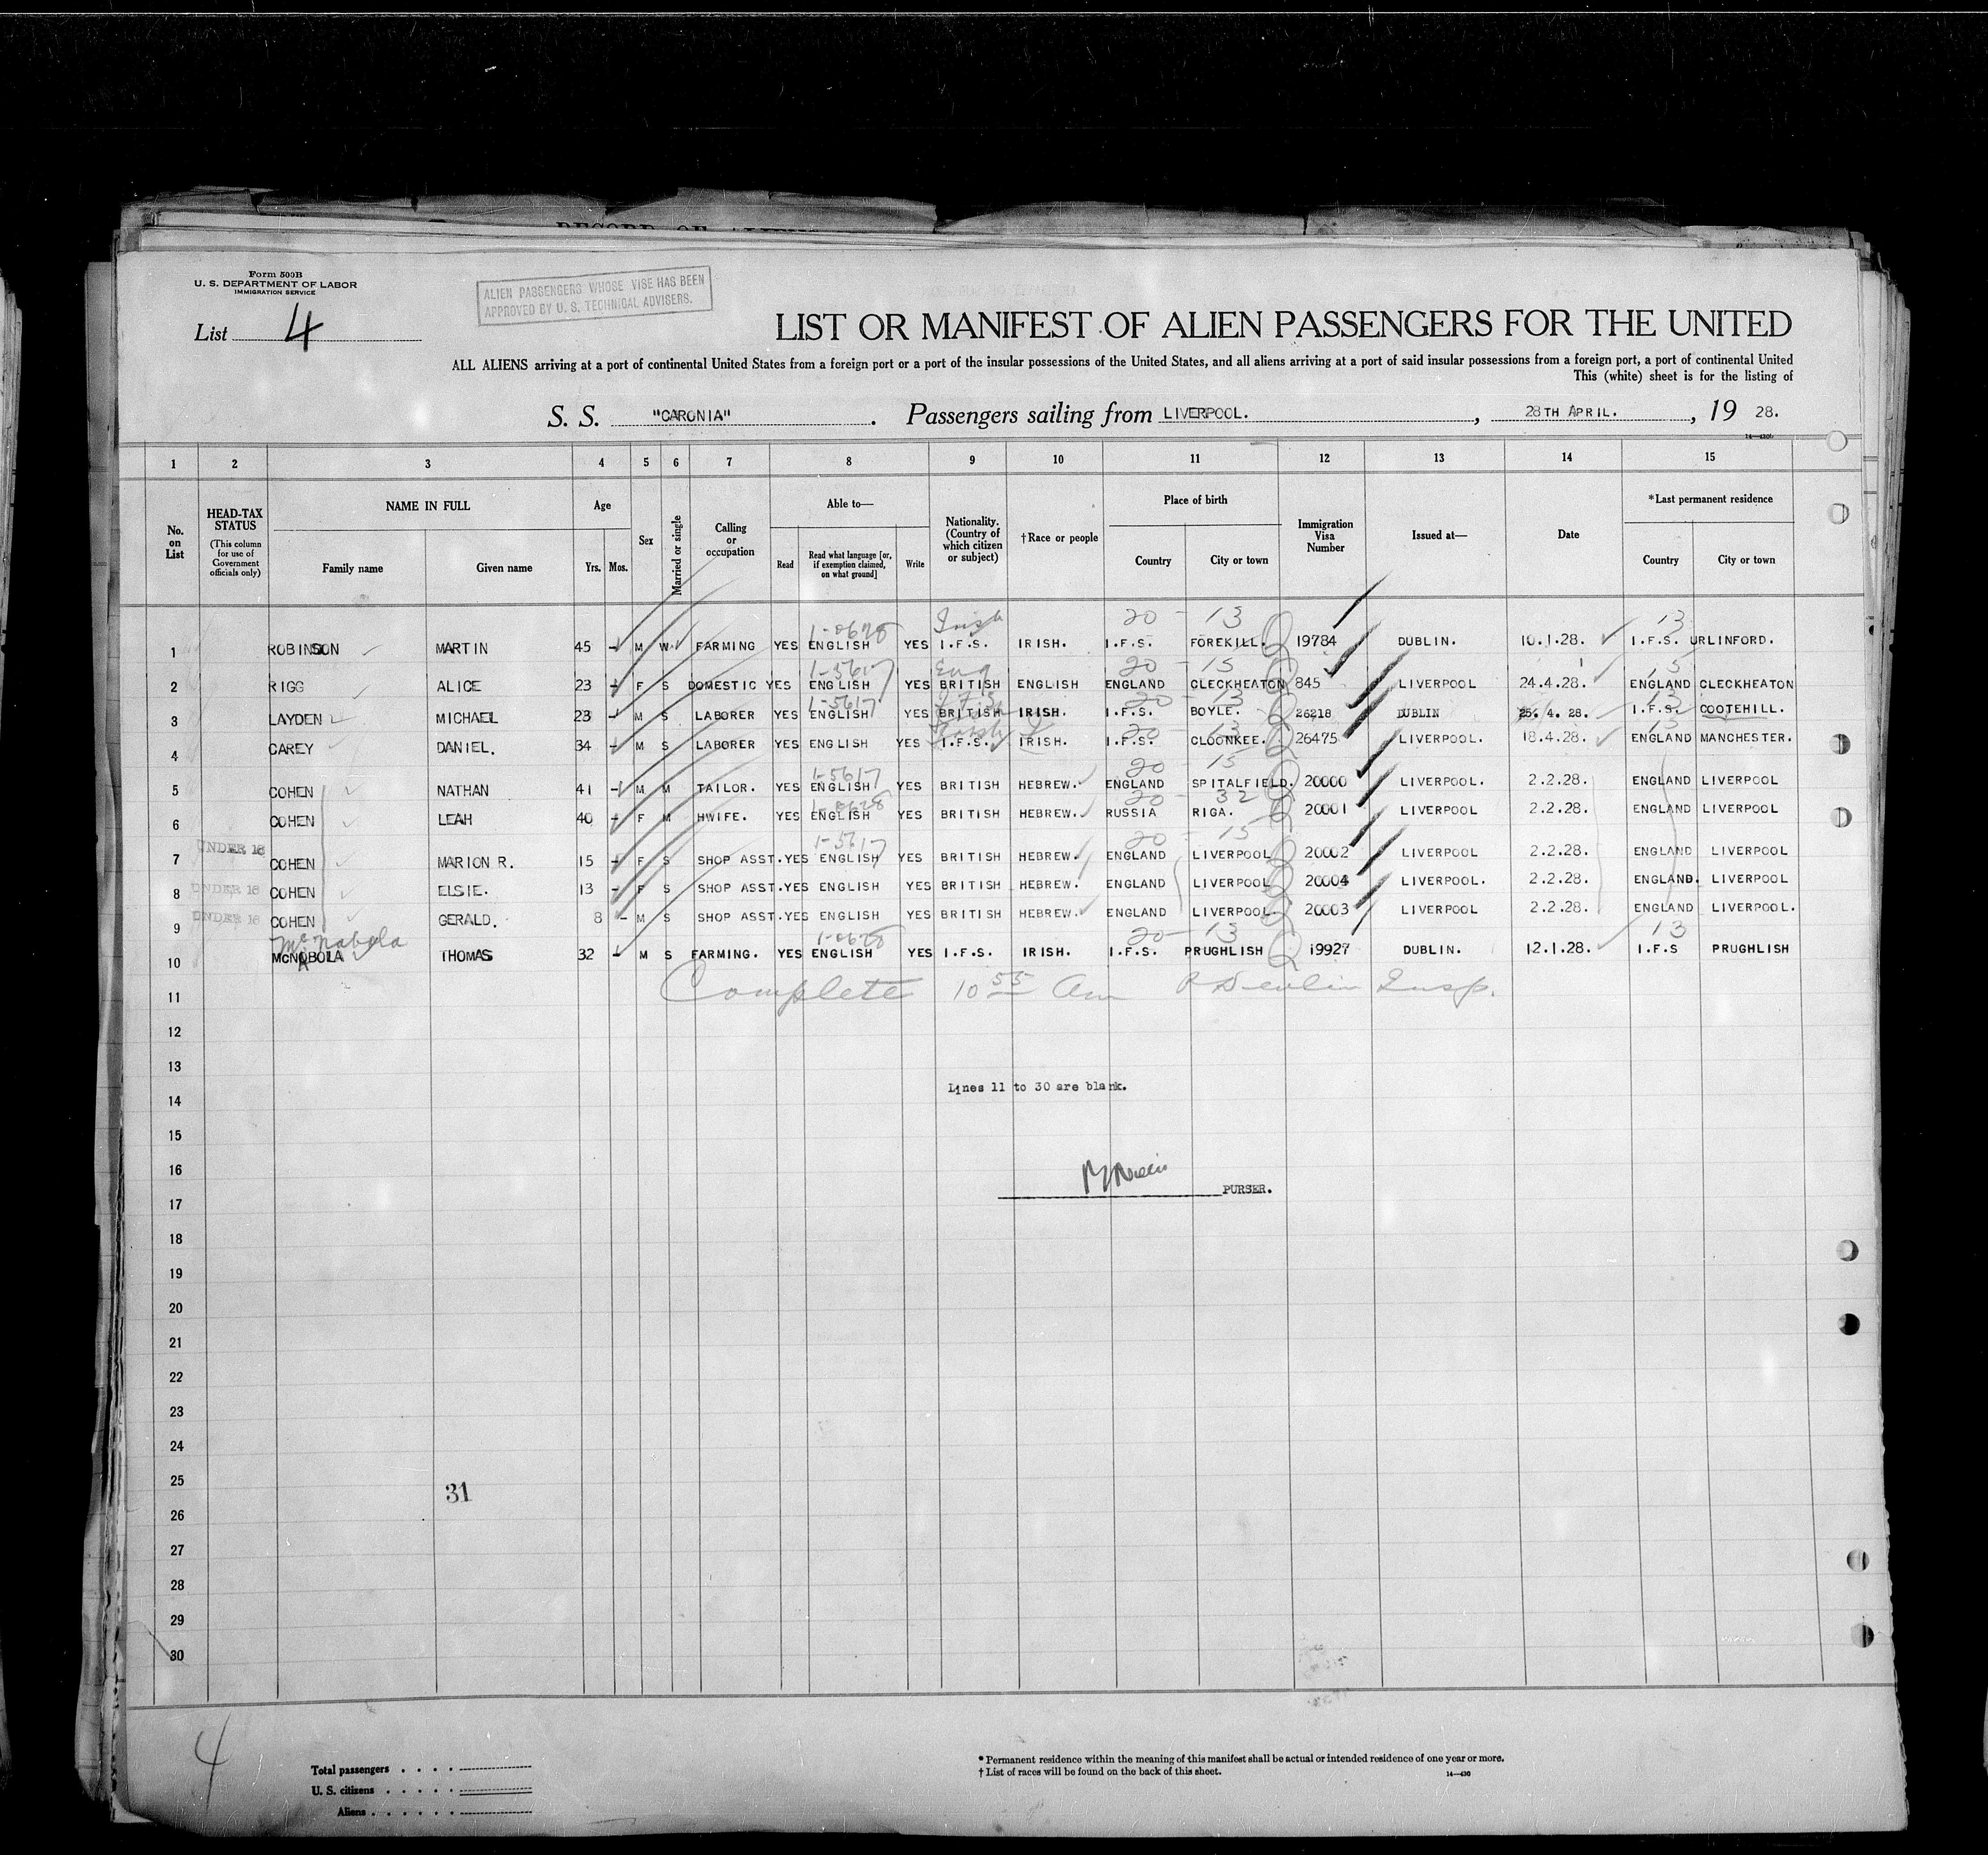 RECORD OF ALIENS
Form 500B
U. S. DEPARTMENT OF LABOR
IMMIGRATION SERVICE
ALIEN PASSENGERS WHOSE VISE HAS BEEN
APPROVED BY U. S. TECHNICAL ADVISERS.
List 4
LIST OR MANIFEST OF ALIEN PASSENGERS FOR THE UNITED
ALL ALIENS arriving at a port of continental United States from a foreign port or a port of the insular possessions of the United States, and all aliens arriving at a port of said insular possessions from a foreign port, a port of continental United
This (white) sheet is for the listing of
S. S. "CARONIA". Passengers sailing from LIVERPOOL., 28TH APRIL., 19 28.
1 2 3 4 5 6 7 8 9 10 11 12 13 14 15
No. on List
HEAD-TAX STATUS (This column for use of Government officials only)
NAME IN FULL Family name Given name
Age Yrs. Mos.
Sex
Married or single
Calling or occupation
Able to— Read Read what language [or, if exemption claimed, on what ground] Write
Nationality. (Country of which citizen or subject)
†Race or people
Place of birth Country City or town
Immigration Visa Number
Issued at—
Date
*Last permanent residence Country City or town
Irish 20 - 13 13
1 ROBINSON MARTIN 45 - M W FARMING YES ENGLISH YES I.F.S. IRISH. I.F.S. FOREKILL. 19784 DUBLIN. 10.1.28. I.F.S. URLINFORD.
1-5617 Eng 20 - 15 15
2 RIGG ALICE 23 - F S DOMESTIC YES ENGLISH YES BRITISH ENGLISH ENGLAND CLECKHEATON 845 LIVERPOOL 24.4.28. ENGLAND CLECKHEATON
1-5617 20 - 13 13
3 LAYDEN MICHAEL 23 - M S LABORER YES ENGLISH YES BRITISH IRISH. I.F.S. BOYLE. 26218 DUBLIN 25.4.28. I.F.S. COOTEHILL.
20 - 13 15
4 CAREY DANIEL. 34 - M S LABORER YES ENGLISH YES I.F.S. IRISH. I.F.S. CLOONKEE. 26475 LIVERPOOL. 18.4.28. ENGLAND MANCHESTER.
1-5617 20 - 15
5 COHEN NATHAN 41 - M M TAILOR. YES ENGLISH YES BRITISH HEBREW. ENGLAND SPITALFIELD. 20000 LIVERPOOL. 2.2.28. ENGLAND LIVERPOOL
20 - 32
6 COHEN LEAH 40 - F M HWIFE. YES ENGLISH YES BRITISH HEBREW. RUSSIA RIGA. 20001 LIVERPOOL 2.2.28. ENGLAND LIVERPOOL
1-5617 20 - 15
7 UNDER 16 COHEN MARION R. 15 - F S SHOP ASST. YES ENGLISH YES BRITISH HEBREW. ENGLAND LIVERPOOL 20002 LIVERPOOL 2.2.28. ENGLAND LIVERPOOL
8 UNDER 16 COHEN ELSIE. 13 - F S SHOP ASST. YES ENGLISH YES BRITISH HEBREW. ENGLAND LIVERPOOL 20004 LIVERPOOL. 2.2.28. ENGLAND. LIVERPOOL
9 UNDER 16 COHEN GERALD. 8 - M S SHOP ASST. YES ENGLISH YES BRITISH HEBREW. ENGLAND LIVERPOOL. 20003 LIVERPOOL 2.2.28. ENGLAND LIVERPOOL.
McNabola 20 - 13 13
10 McNOBOLA A THOMAS 32 - M S FARMING. YES ENGLISH YES I.F.S. IRISH. I.F.S. PRUGHLISH 19927 DUBLIN. 12.1.28. I.F.S PRUGHLISH
11 Complete 10 55 am Insp.
12
13
Lines 11 to 30 are blank.
14
15
16
PURSER.
17
18
19
20
21
22
23
24
25
31
26
27
28
29
30
4
Total passengers
U. S. citizens
Aliens
* Permanent residence within the meaning of this manifest shall be actual or intended residence of one year or more.
† List of races will be found on the back of this sheet.
14—430